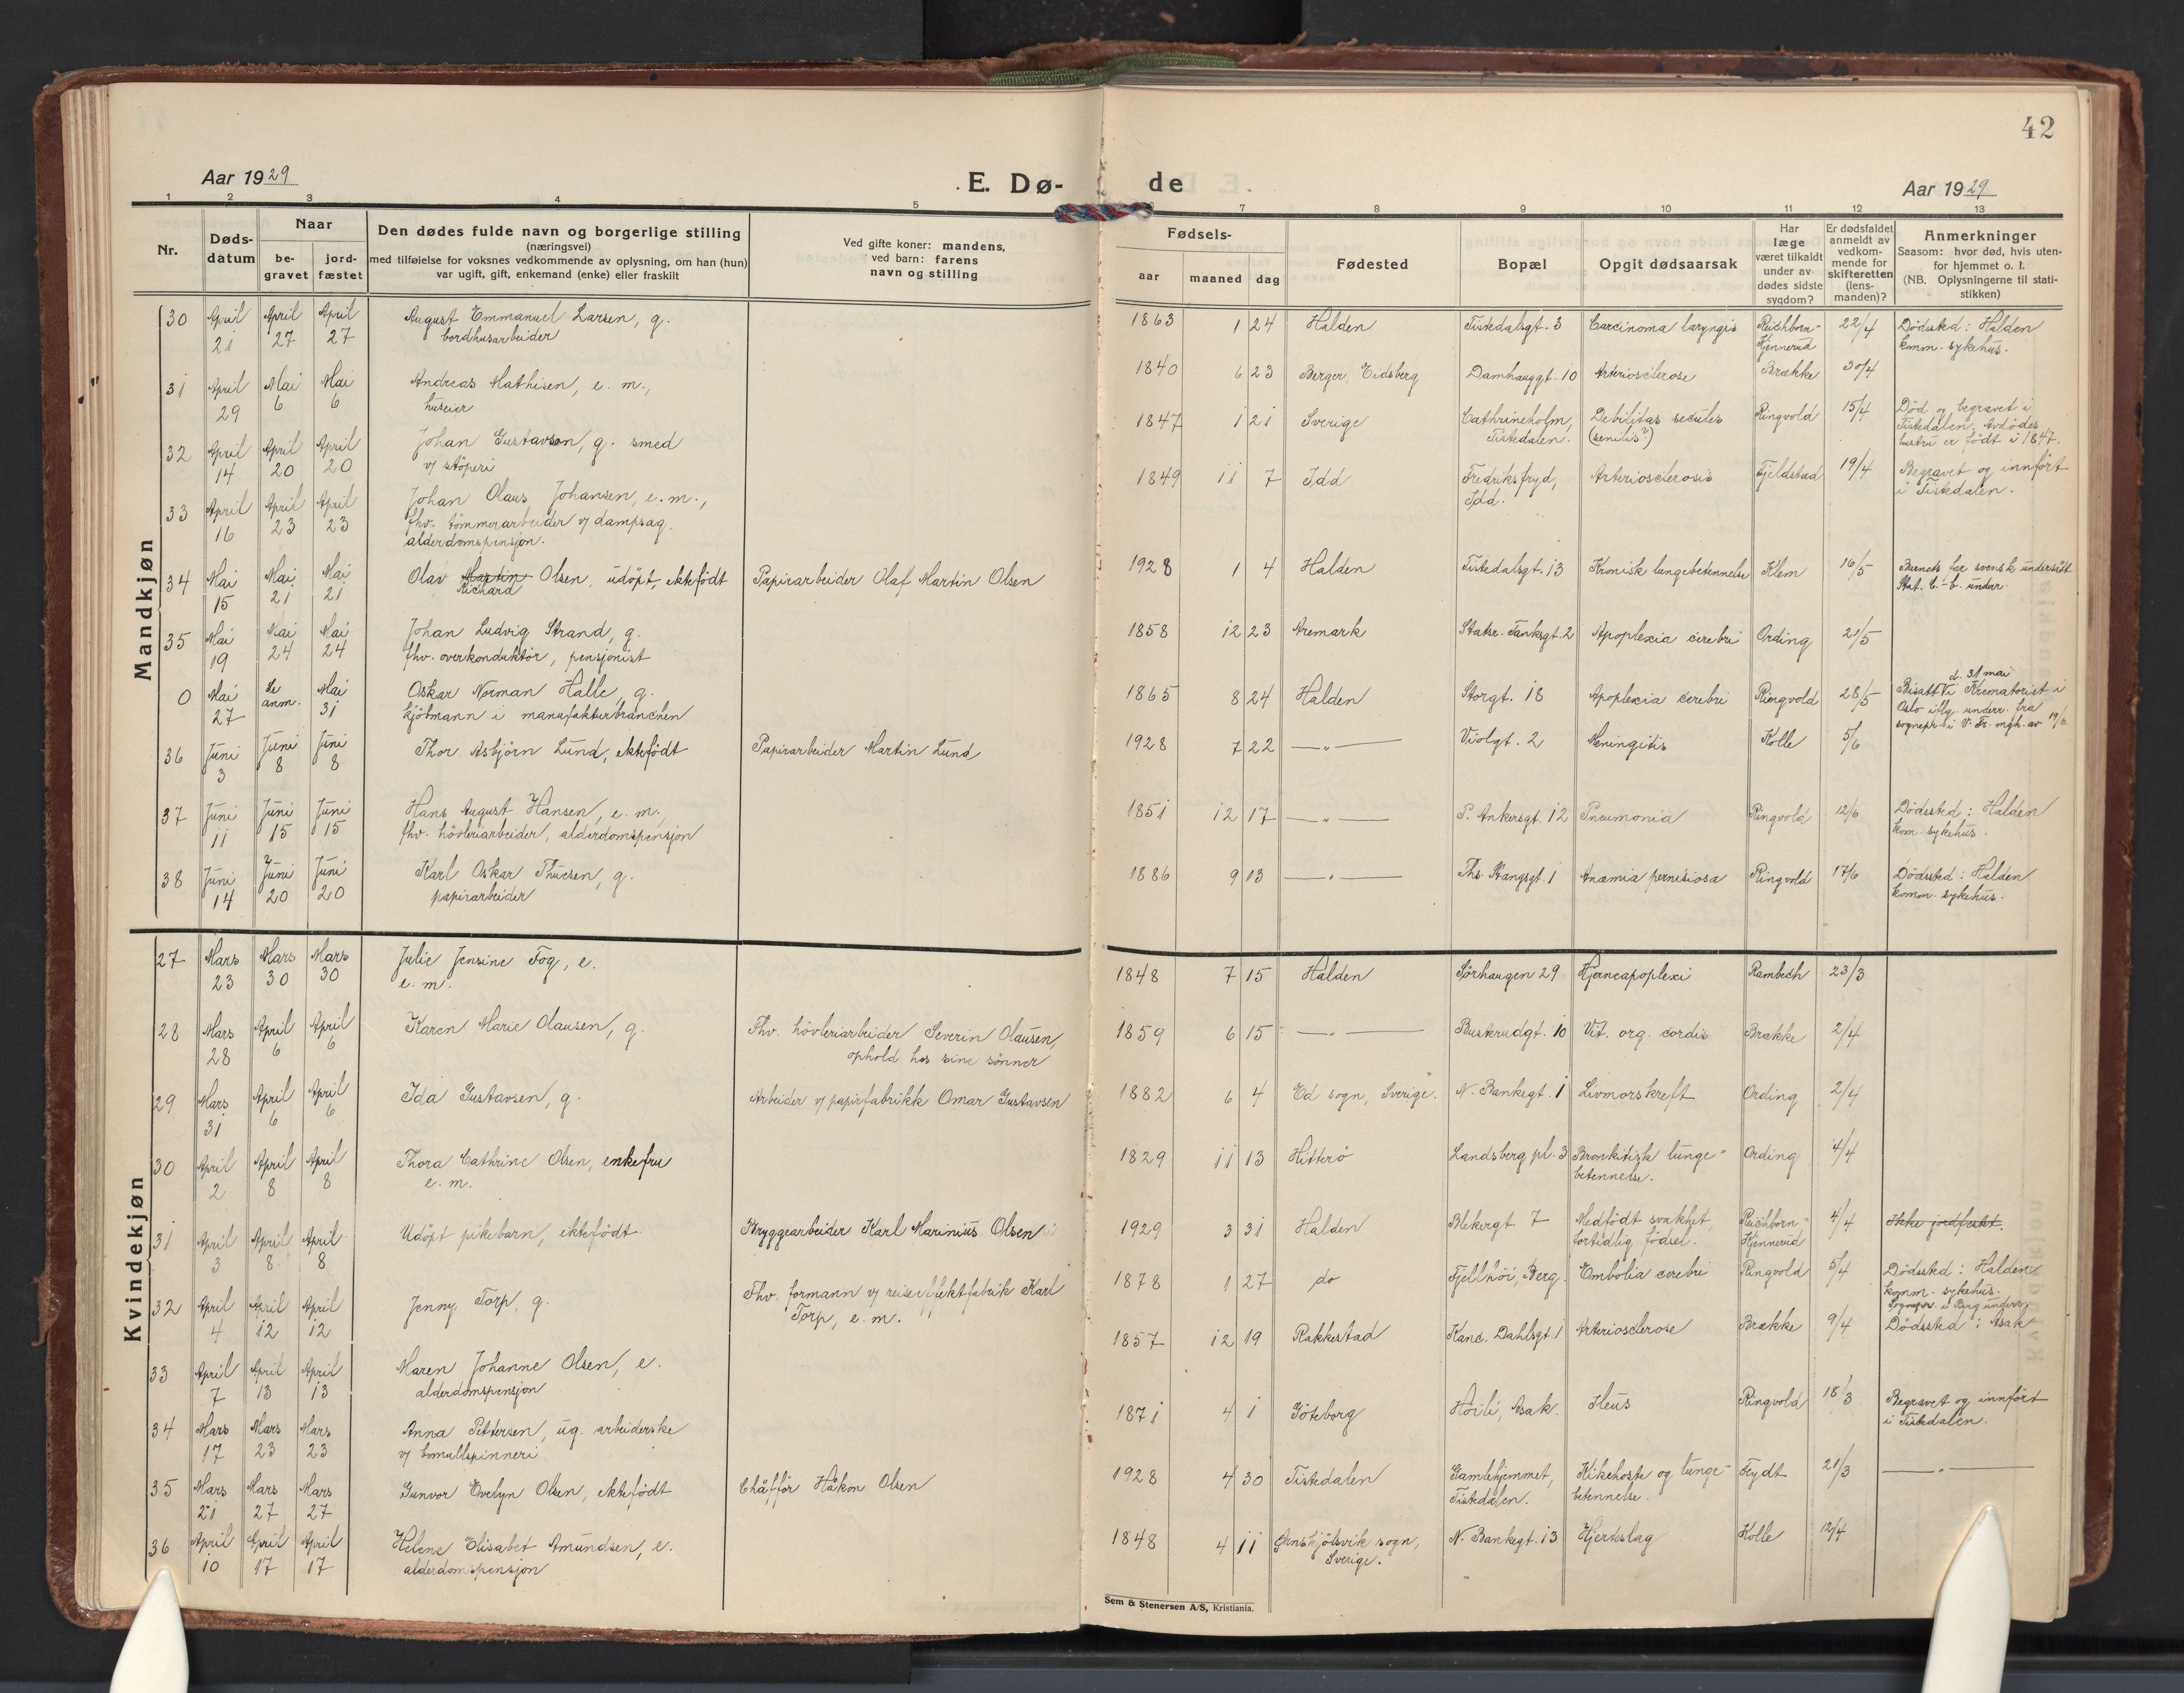 42
Aar 1929
E. Dø-
de
Aar 1929
1 2 3 4 5 6 7 8 9 10 11 12 13
Nr.
Døds-
datum
Naar
be-
gravet
jord-
fæstet
Den dødes fulde navn og borgerlige stilling
(næringsvei)
med tilføielse for voksnes vedkommende av oplysning, om han (hun)
var ugift, gift, enkemand (enke) eller fraskilt
Ved gifte koner: mandens,
ved barn: farens
navn og stilling
Fødsels-
aar
maaned
dag
Fødested
Bopæl
Opgit dødsaarsak
Har
læge
været tilkaldt
under av-
dødes sidste
sygdom?
Er dødsfaldet
anmeldt av
vedkom-
mende for
skifteretten
(lens-
manden)?
Anmerkninger
Saasom: hvor død, hvis uten-
for hjemmet o. l.
(NB. Oplysningerne til stati-
stikken)
Mandkjøn
30 April 21 April 27 April 27 August Emmanuel Larsen, g. 1863 1 24 Halden Tistedalsgt. 3 Carcinoma laryngis Reichborn- 22/4 Dødssted: Halden
bordhusarbeider Kjennerud komm. sykehus.
31 April 29 Mai 6 Mai 6 Andreas Mathisen, e. m., 1840 6 23 Berger, Eidsberg Damhauggt. 10 Arteriosclerose Brække 30/4
huseier
32 April 14 April 20 April 20 Johan Gustavson, g. smed 1847 1 21 Sverige Cathrineholm, Debilitas secules Ringvold 15/4 Død og begravet i
v/ støperi Tistedalen. (senilis?) Tistedalen. Avdødes
hustru er født i 1847.
33 April 16 April 23 April 23 Johan Olaus Johansen, e. m., 1849 11 7 Idd Fredriksfryd, Arteriosclerosis Fjeldstad 19/4 Begravet og innført
fhv. tømmerarbeider v/ dampsag. Idd. i Tistedalen.
alderdomspensjon.
34 Mai 15 Mai 21 Mai 21 Olav Martin Olsen, udøpt, ektefødt Papirarbeider Olaf Martin Olsen 1928 1 4 Halden Tistedalsgt. 13 Kronisk lungebetennelse Klem 16/5 Barnets far svensk undersått
Richard Stat. C.-b. underr.
35 Mai 19 Mai 24 Mai 24 Johan Ludvig Strand, g. 1858 12 23 Aremark Statsr. Tanksgt. 2 Apoplexia cerebri Ording 21/5
fhv. overkonduktør, pensjonist
0 Mai 27 Se anm. Mai 31 Oskar Norman Halle, g. 1865 8 24 Halden Storgt. 18 Apoplexia cerebri Ringvold 28/5 d. 31 mai
Bisatt i Krematoriet i
kjøbmann i manufakturbranchen Oslo iflg. underr. fra
sognepr. i V. Fr. mgh. av 19/6.
36 Juni 3 Juni 8 Juni 8 Thor Asbjørn Lund, ektefødt Papirarbeider Martin Lund 1928 7 22 —"— Violgt. 2 Meningitis Kolle 5/6
37 Juni 11 Juni 15 Juni 15 Hans August Hansen, e. m., 1851 12 17 —"— P. Ankersgt. 12 Pneumonia Ringvold 12/6 Dødssted: Halden
fhv. høvleriarbeider, alderdomspensjon kom. sykehus.
38 Juni 14 Juni 20 Juni 20 Karl Oskar Thuesen, g. 1886 9 13 —"— Ths. Stangsgt. 1 Anæmia pernisiosa Ringvold 17/6 Dødssted: Halden
papirarbeider komm. sykehus.
Kvindekjøn
27 Mars 23 Mars 30 Mars 30 Julie Jensine Fog, e. 1848 7 15 Halden Sørhaugen 29 Hjerneapoplexi Rambech 23/3
e. m.
28 Mars 28 April 6 April 6 Karen Marie Olausen, g. Fhv. høvleriarbeider Severin Olausen, 1859 6 15 —"— Busterudgt. 10 Vit. org. cordis Brække 2/4
ophold hos sine sønner
29 Mars 31 April 6 April 6 Ida Gustavsen, g. Arbeider v/ papirfabrikk Omar Gustavsen 1882 6 4 Ed sogn, Sverige. N. Bankegt. 1 Livmorskreft Ording 2/4
30 April 2 April 8 April 8 Thora Cathrine Olsen, enkefru 1829 11 13 Hitterø Landsberg pl. 3 Bronkitisk lunge- Ording 4/4
e. m. betennelse.
31 April 3 April 8 April 8 Udøpt pikebarn, ektefødt Bryggearbeider Karl Marinius Olsen 1929 3 31 Halden Blekergt. 7 Medfødt svakhet, Reichborn- 4/4 Ikke jordfestet.
fortidlig fødsel. Kjennerud
32 April 4 April 12 April 12 Jenny Torp, g. Fhv. formann v/ reiseeffektfabrik Karl 1878 1 27 do Fjellhöi, Berg. Embolia cerebri Ringvold 5/4 Dødssted: Halden
Torp, e. m. komm. sykehus.
Sognepr. i Berg underr.
33 April 7 April 13 April 13 Maren Johanne Olsen, e. 1857 12 19 Rakkestad Kanc. Dahlsgt. 1 Arteriosclerose Brække 9/4 Dødssted: Asak
alderdomspensjon
34 Mars 17 Mars 23 Mars 23 Anna Pettersen, ug. arbeiderske 1871 4 1 Göteborg Höili, Asak. Ileus Ringvold 18/3 Begravet og innført
v/ bomullspinneri. i Tistedalen.
35 Mars 21 Mars 27 Mars 27 Gunvor Evelyn Olsen, ektefødt Chåffør Håkon Olsen 1928 4 30 Tistedalen Gamlehjemmet, Kikehoste og lunge- Feydt 21/3 —"—
Tistedalen. betennelse.
36 April 10 April 17 April 17 Helene Elisabet Amundsen, e. 1848 4 11 sogn, N. Bankegt. 13 Hjerteslag Kolle 12/4
alderdomspensjon Sverige.
Sem & Stenersen A/S, Kristiania.